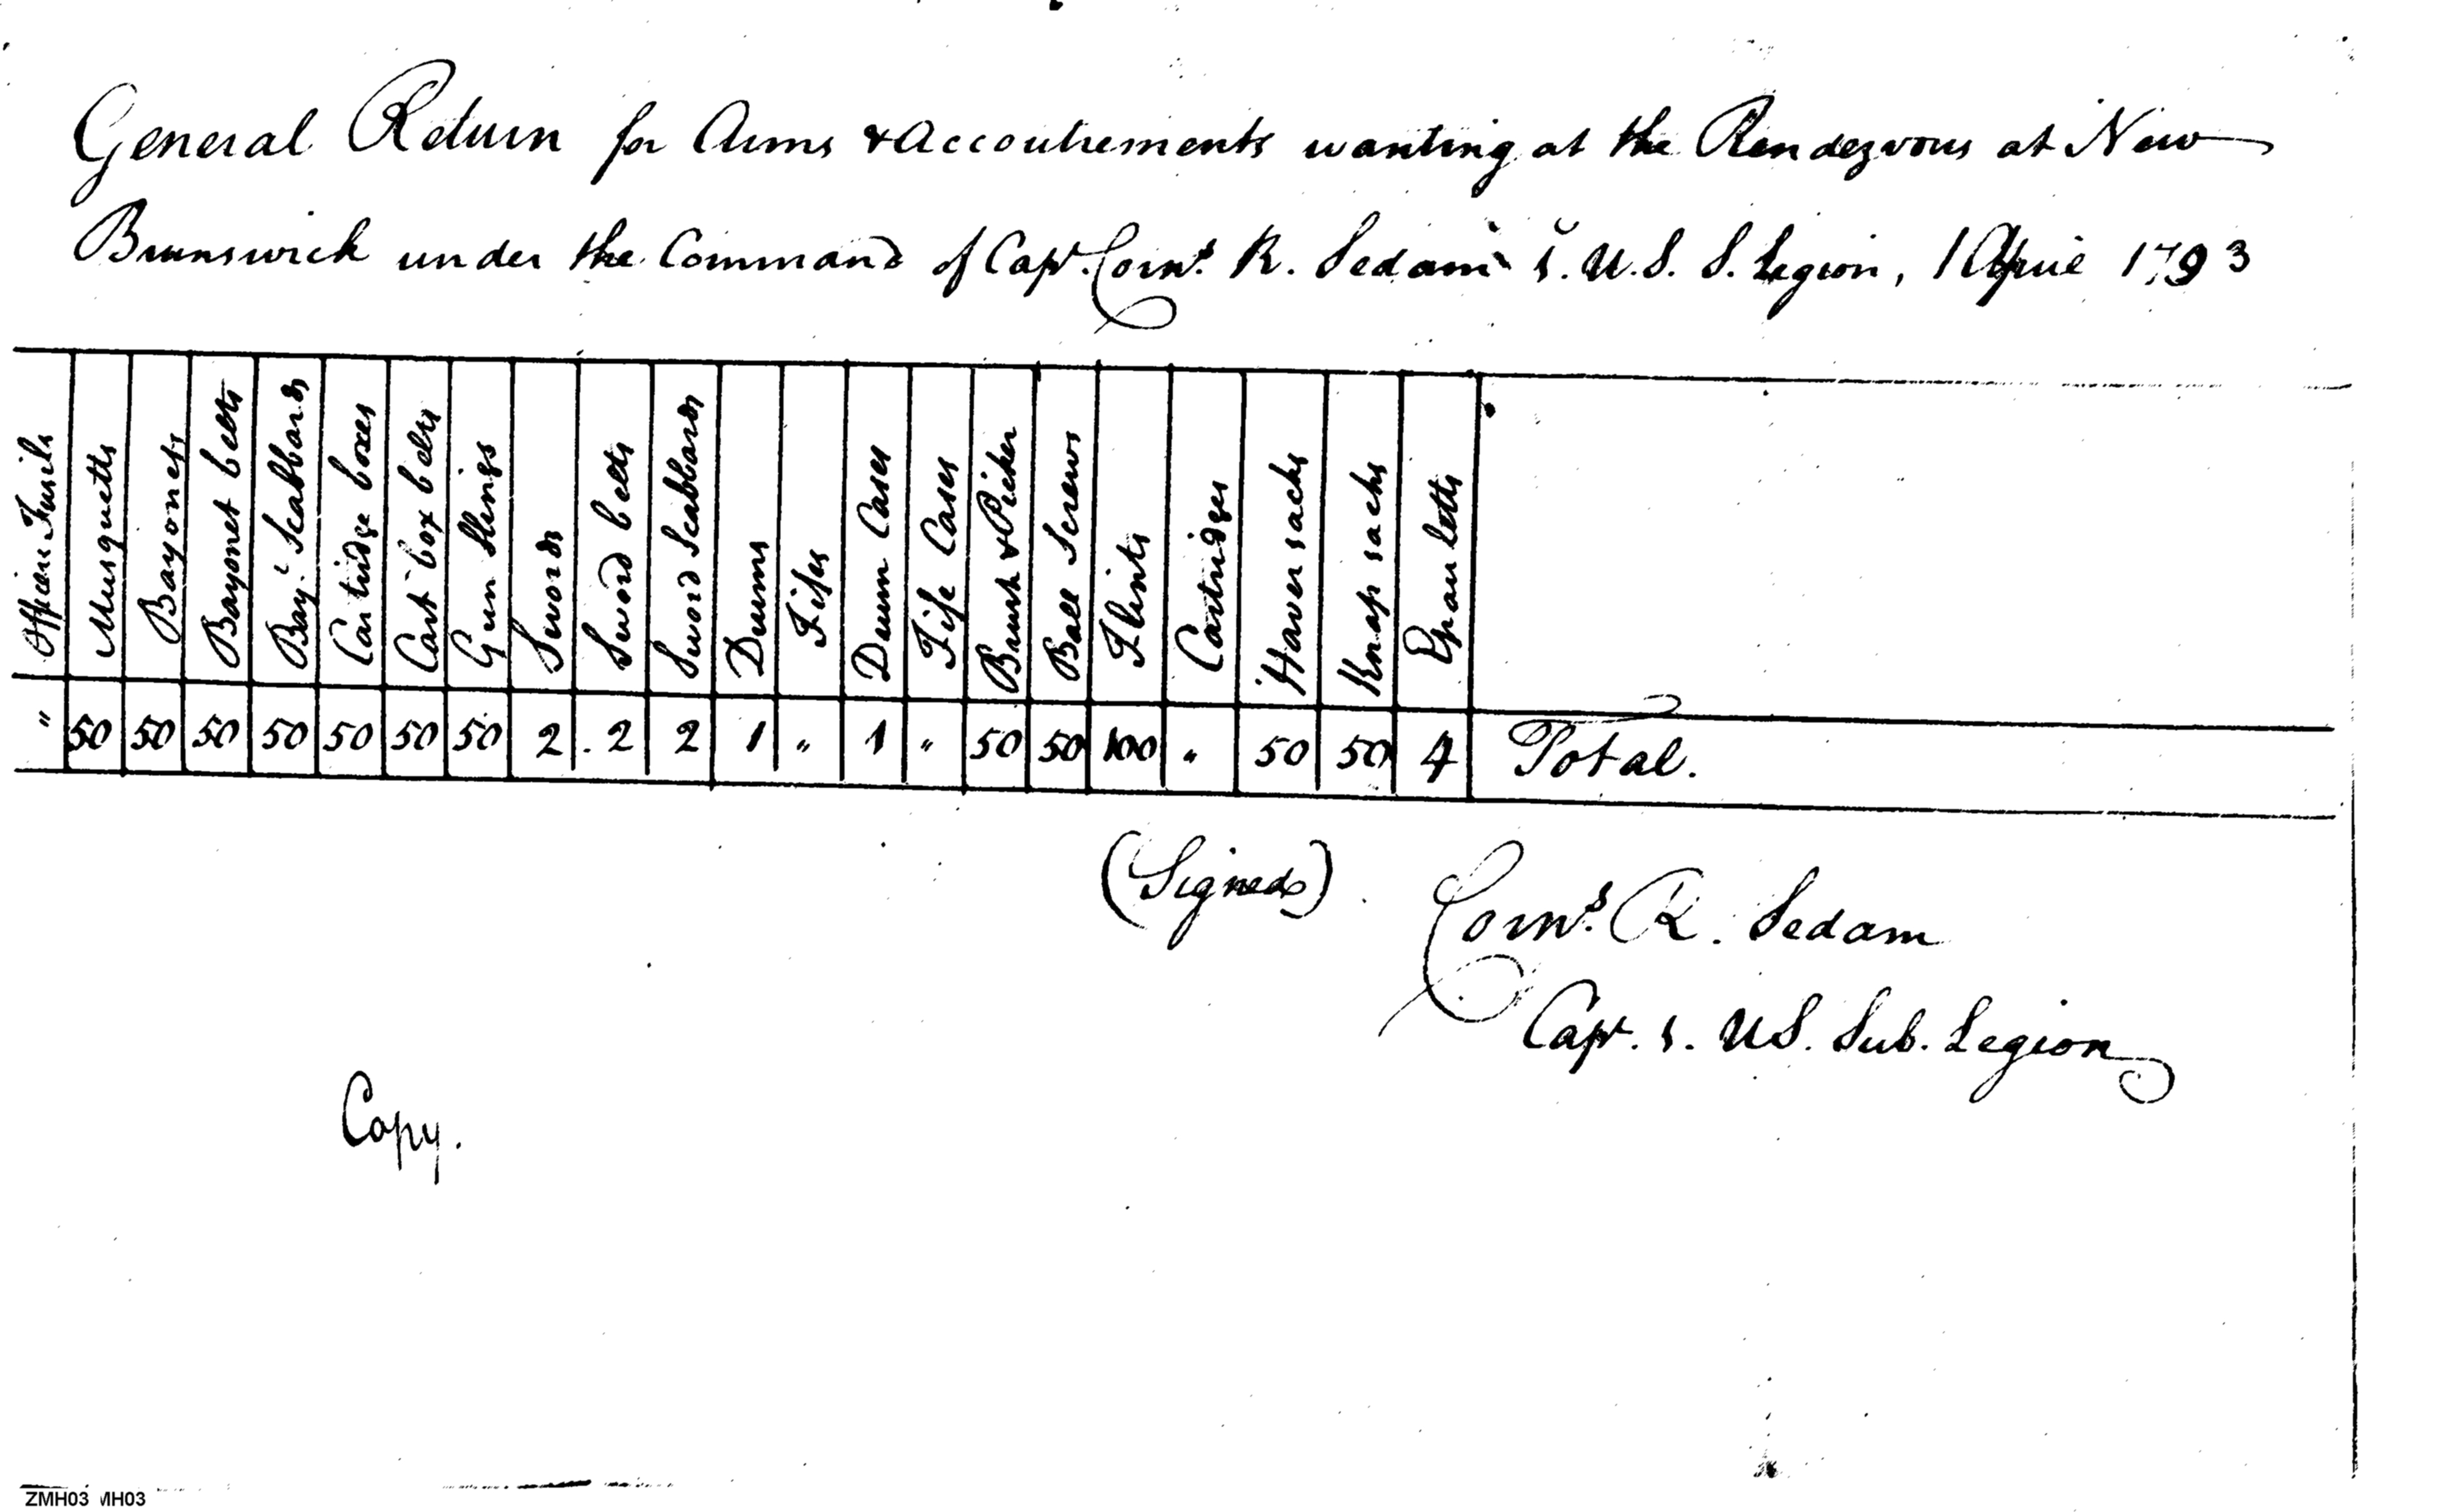 General Return for Arms & Accoutrements wanting at the Rendezvous at New
Brunswick under the Command of Capt. Corns. R. Sedam 1. U.S. S. Legion, 1 April 1793
Officers Fusils
Musquetts
Bayonets
Bayonet belts
Bayt. Scabbards
Cartridge boxes
Cart. box belts
Gun Slings
Swords
Sword belts
Sword Scabbards
Drums
Fifes
Drum Cases
Fife Cases
Brush & Picker
Ball Screws
Flints
Cartridges
Haversacks
Knapsacks
Epauletts
" 50 50 50 50 50 50 50 2 2 2 1 " 1 " 50 50 100 " 50 50 4 Total.
(Signed) Corns. R. Sedam
Capt. 1. US. Sub. Legion
Copy.
ZMH03 MH03